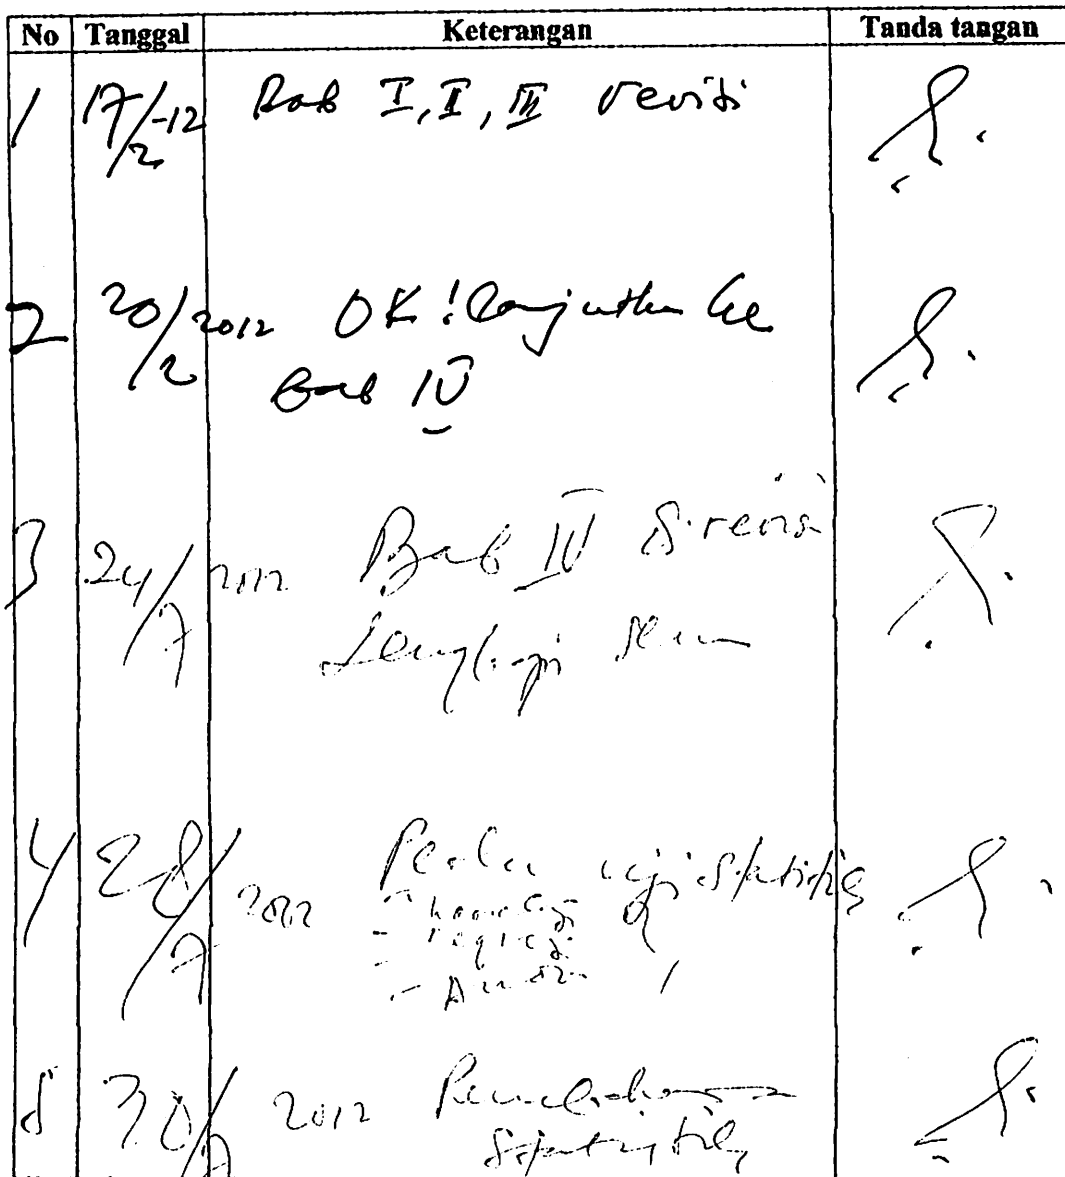 No Tanggal Keterangan Tanda tangan
1 17/2-12 Bab I, II, III revisi
2 20/2 2012 OK! Lanjutkan ke
Bab IV
3 24/7 2012 Bab IV direvisi
Lengkapi
4 28/7 2012 Perlu uji statistik
- korelasi
- regresi
-
5 30/7 2012